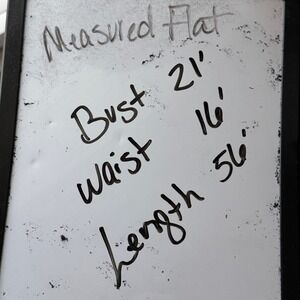 Measured Flat
Bust 21'
Waist 16'
Length 56'